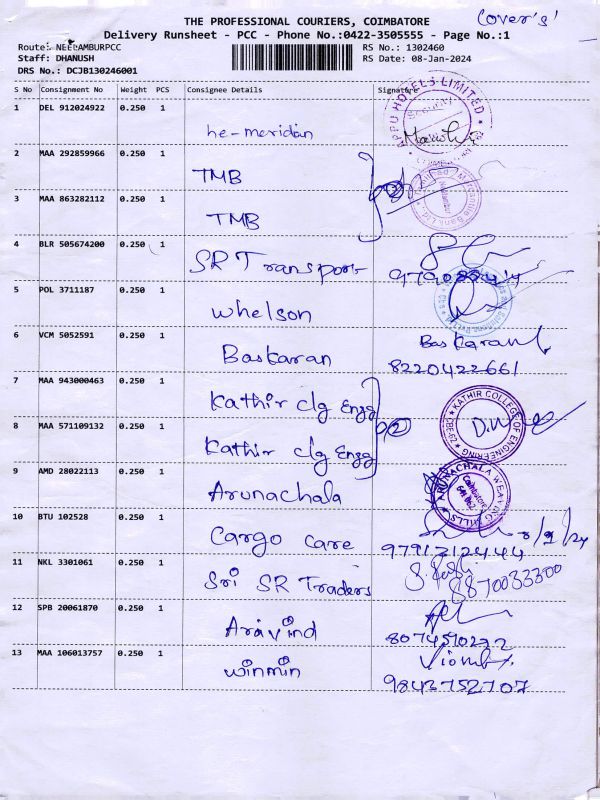 cover's'
THE PROFESSIONAL COURIERS, COIMBATORE
Delivery Runsheet - PCC - Phone No.:0422-3505555 - Page No.:1
Route: NEELAMBURPCC RS No.: 1302460
Staff: DHANUSH RS Date: 08-Jan-2024
DRS No.: DCJB130246001
S No Consignment No Weight PCS Consignee Details Signature
1 DEL 912024922 0.250 1 he-meridian
APPU HOTELS LIMITED Security
2 MAA 292859966 0.250 1 TMB
3 MAA 863282112 0.250 1 TMB
Mercantile Bank Ltd
4 BLR 505674200 0.250 1 SR Transport
5 POL 3711187 0.250 1 Whelson
6 VCM 5052591 0.250 1 Baskaran Baskaran
8220422661
7 MAA 943000463 0.250 1 Kathir clg Engg
8 MAA 571109132 0.250 1 Kathir clg Engg
KATHIR COLLEGE OF ENGINEERING
9 AMD 28022113 0.250 1 Arunachala
ARUNACHALA WEAVING MILLS Coimbatore
10 BTU 102528 0.250 1 Cargo care 8/1/24
9791212444
11 NKL 3301061 0.250 1 Sri SR Traders 8870033300
12 SPB 20061870 0.250 1 Aravind
8074510292
13 MAA 106013757 0.250 1 winmin
9842752707